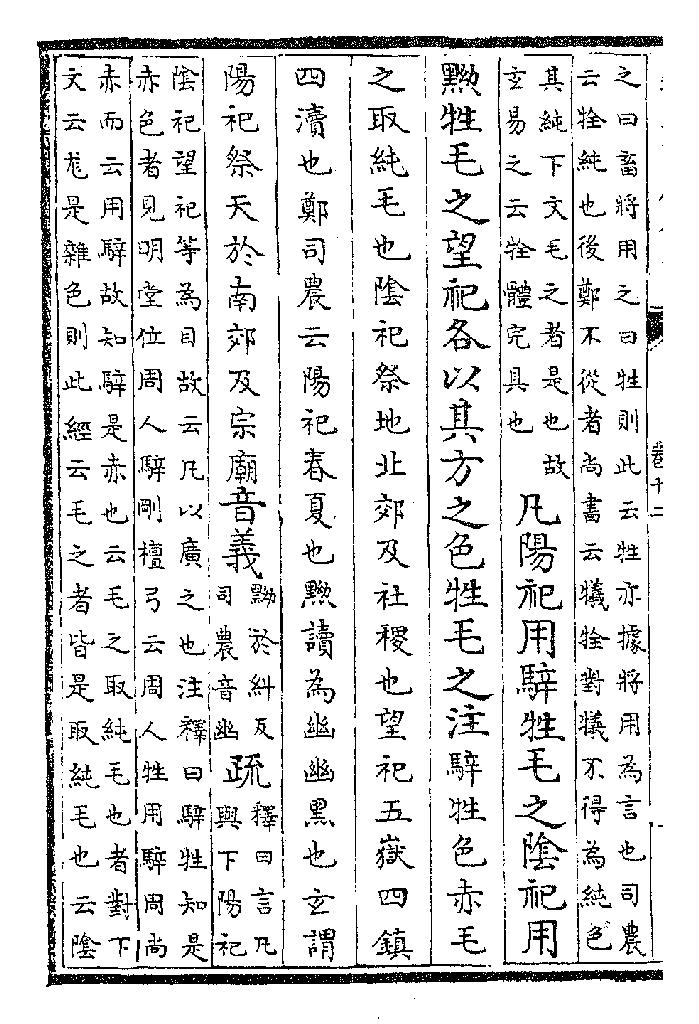 卷十二
之曰畜將用之曰牲則此云牲亦據將用為言也司農
云牷純也後鄭不從者尚書云犧牷對犧不得為純色
其純下文毛之者是也故
玄易之云牷體完具也
凡陽祀用騂牲毛之陰祀用
黝牲毛之望祀各以其方之色牲毛之注騂牲色赤毛
之取純毛也陰祀祭地北郊及社稷也望祀五嶽四鎮
四瀆也鄭司農云陽祀春夏也黝讀為幽幽黑也玄謂
陽祀祭天於南郊及宗廟音義
黝於糾反
司農音幽
疏
釋曰言凡
與下陽祀
陰祀望祀等為目故云凡以廣之也注釋曰騂牲知是
赤色者見明堂位周人騂剛檀弓云周人牲用騂周尚
赤而云用騂故知騂是赤也云毛之取純毛也者對下
文云尨是雜色則此經云毛之者皆是取純毛也云陰